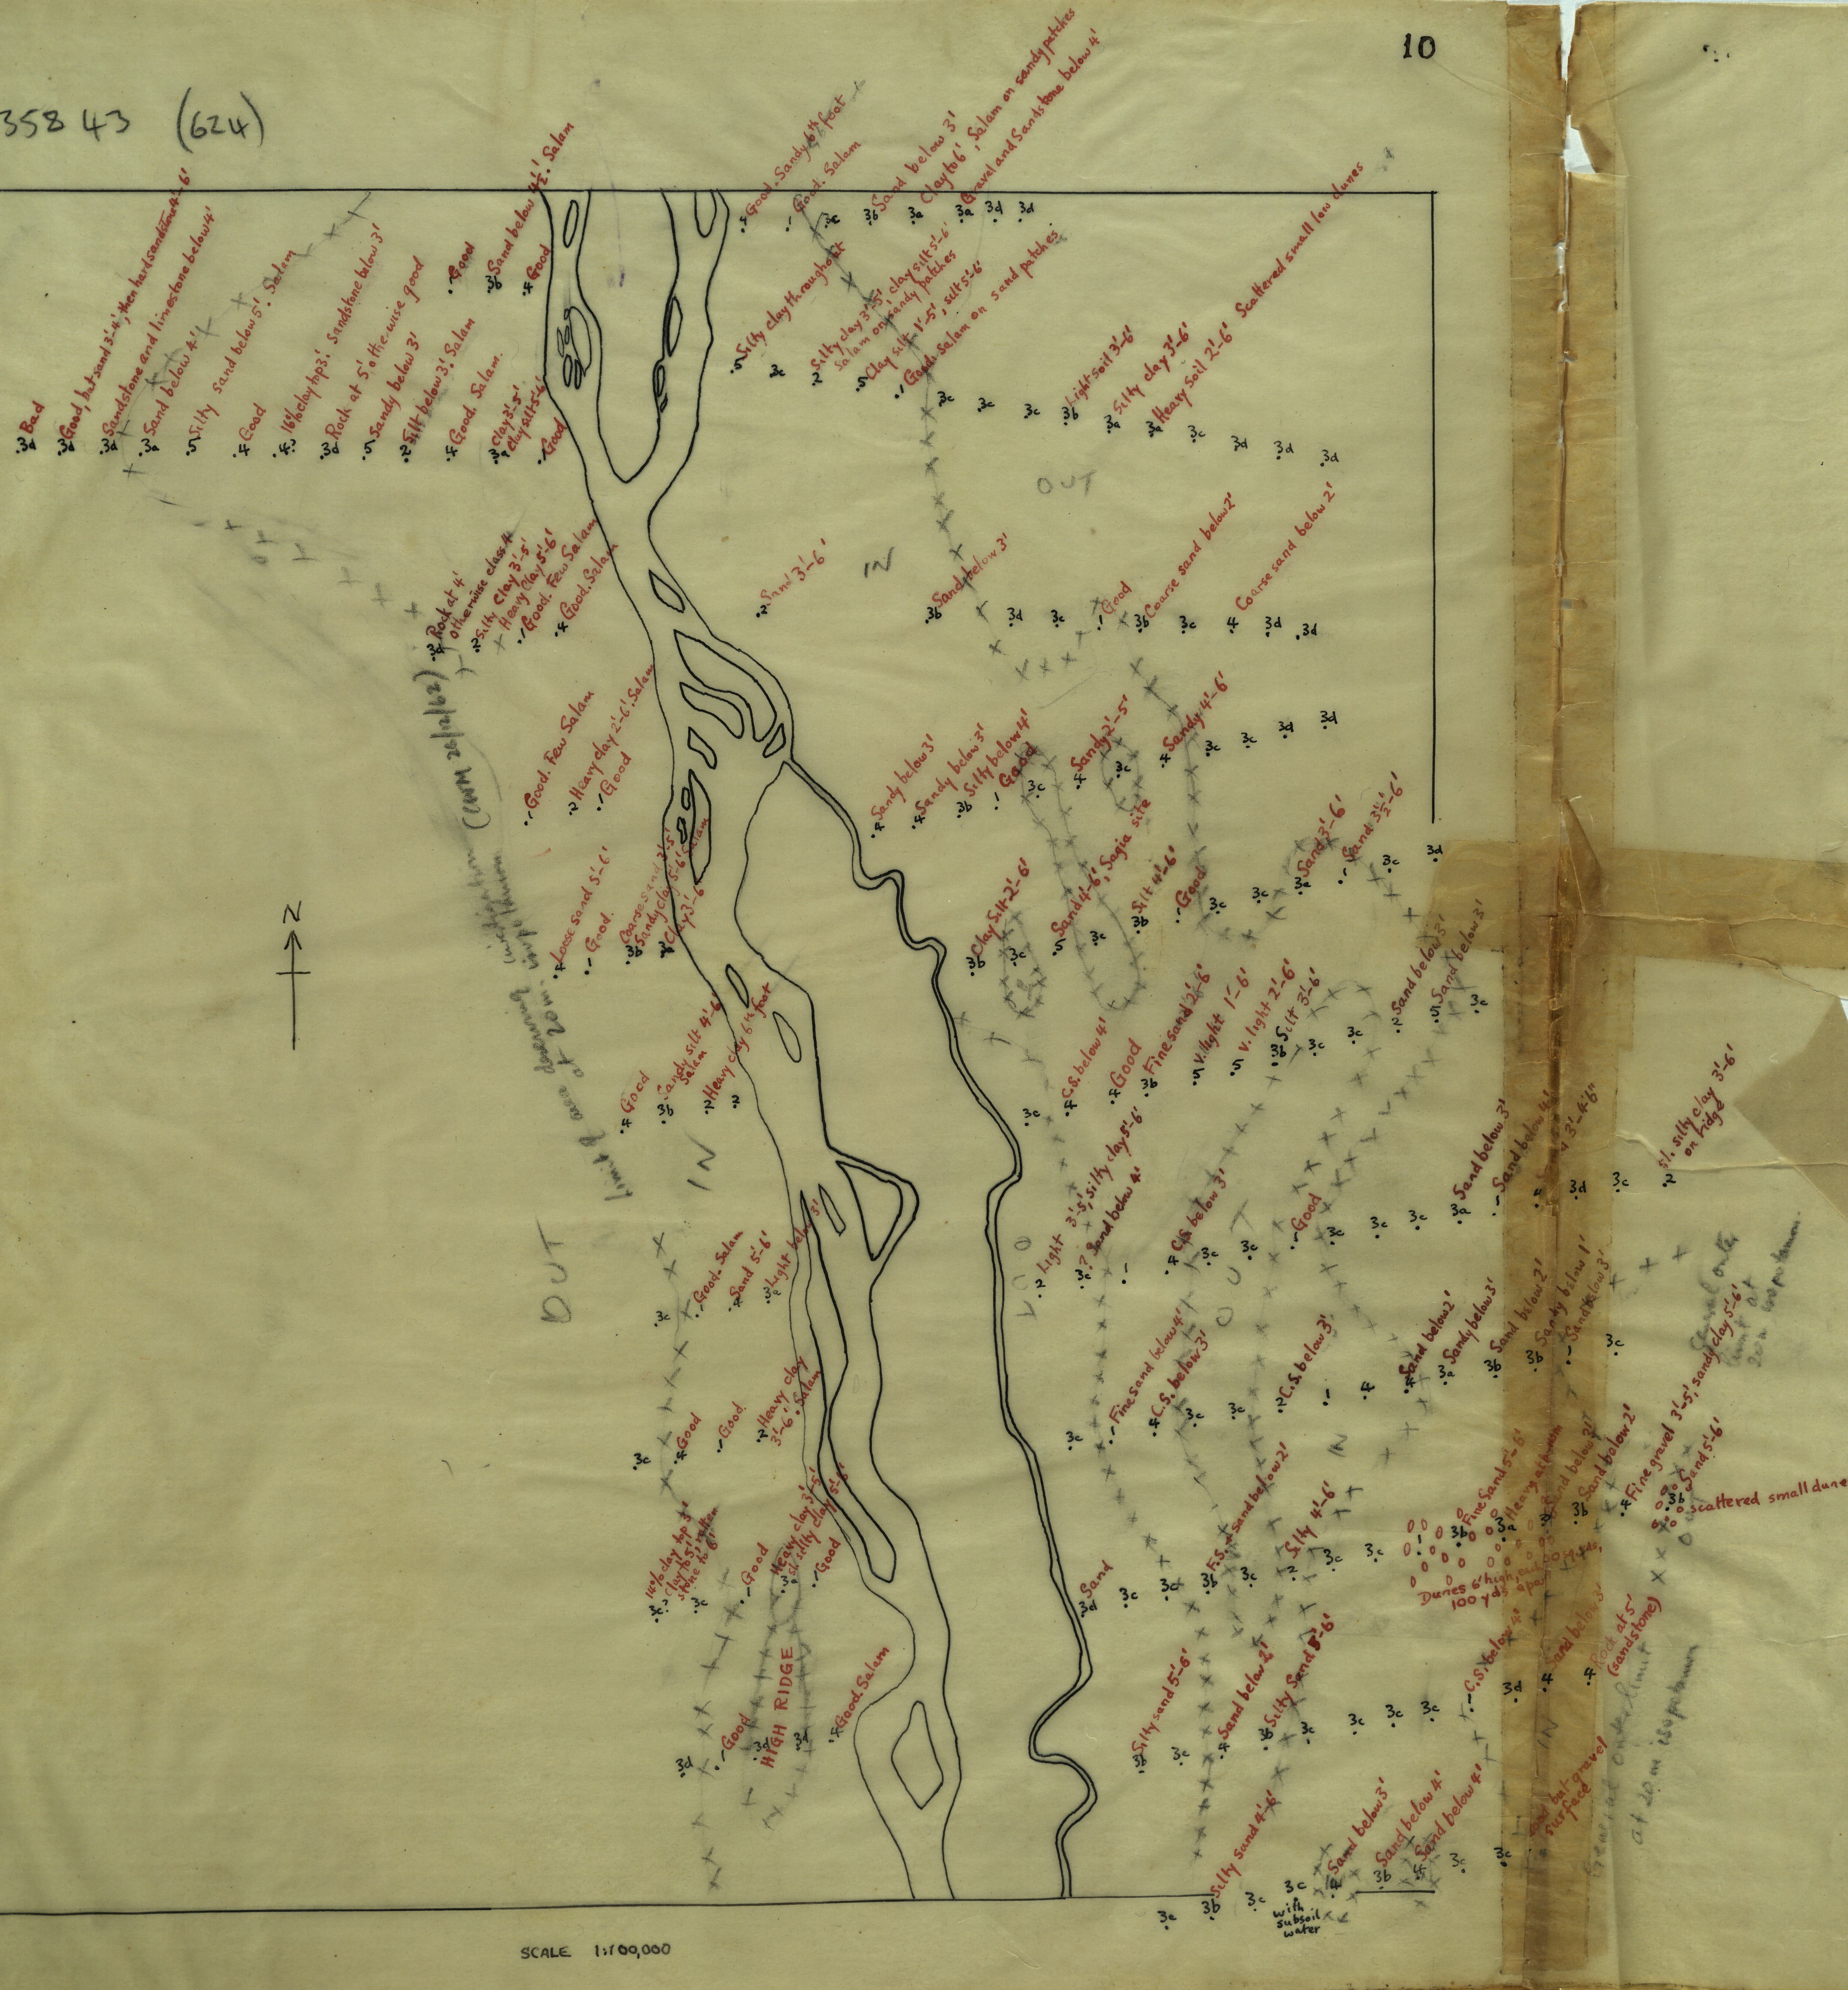 10
358 43 (624)
Bad
3d
Good, but sand 3'-4', then hard sandstone 4'-6'
3d
Sandstone and limestone below 4'
3d
Sand below 4'
3a
Silty sand below 5'. Salam
5
Good
4
16% clay top 3'. Sandstone below 3'
4?
Rock at 5' otherwise good
3d
Sandy below 3'
5
Silt below 3'. Salam
2
Good. Salam.
4
Clay 3'-5'
Clay silt 5'-6'
3a
Good
Good
Sand below 4½'. Salam
3b
Good
4
Good. Sandy 6th foot
4
Good. Salam
1
3c
3b
Sand below 3'
3a
Clay to 6', Salam on sandy patches
3a
Gravel and Sandstone below 4'
3d
3d
Silty clay throughout
5
3c
Silty clay 3'-5', clay silt 5'-6'
Salam on sandy patches
2
Clay silt 1'-5', silt 5'-6'
5
Good. Salam on sand patches
1
3c
3c
3c
Light soil 3'-6'
3b
Silty clay 3'-6'
3a
Heavy soil 2'-6'
3a
Scattered small low dunes
3c
3d
3d
3d
OUT
IN
Rock at 4'
otherwise class 4
Silty Clay 3'-5'
Heavy Clay 5'-6'
2
Good. Few Salam
Good. Salam
4
Sand 3'-6'
2
Sand below 3'
3b
3d
3c
Good
1
3b
Coarse sand below 2'
3c
4
Coarse sand below 2'
3d
3d
Good. Few Salam
Heavy clay 2'-6'. Salam
2
Good
Sandy below 3'
4
Sandy below 3'
4
Silty below 4'
3b
Good
1
3c
Sandy 2'-5'
4
3c
Sandy 4'-6'
4
3c
3c
3d
3d
Loose sand 5'-6'
4
Good.
1
Coarse sand 3'-5'
Sandy clay 5'-6' Salam
3b
Clay 3'-6'
Clay silt 2'-6'
3b
3c
Sand 4'-6', Sagia site
5
3c
Silt 4'-6'
3b
Good
3c
3c
Sand 3'-6'
3a
Sand 3½'-6'
3c
3d
N
Good
4
Sandy silt 4'-6'
Salam
3b
Heavy clay 6th foot
2
2
3c
C.S. below 4'
4
Good
4
Fine sand 2'-6'
3b
V. light 1'-6'
5
V. light 2'-6'
5
Silt 3'-6'
3b
3c
3c
Sand below 3'
2
Sand below 3'
5
3c
Limit of area deserving
at 20m. isopotamum
(CWM 26/12/62)
IN
OUT
3c
Good. Salam
Sand 5'-6'
4
Light below 3'
Light 3'-5', silty clay 5'-6'
2
? Sand below 4'
3c
1
C.S. below 3'
4
3c
3c
Good
3c
3c
3c
Sand below 3'
3a
Sand below 4'
1
3'-4'6"
3d
3c
2
Sl. silty clay 3'-6'
on ridge
OUT
3c
Good
4
Good.
Heavy clay
3'-6'. Salam
2
3c
Fine sand below 4'
C.S. below 3'
4
3c
3c
C.S. below 3'
2
1
4
Sand below 2'
4
Sandy below 3'
3a
Sand below 2'
3b
Sandy below 1'
3b
Sand below 3'
1
3c
IN
14% clay top 3'
Clay to 5', rotten
stone to 6'
3c?
3c
Good
Heavy clay 3'-5'
Silty clay 5'-6'
3
Good
Sand
3d
3c
3c
F.S. Sand below 2'
3b
3c
Silty 4'-6'
2
3c
3c
1
Fine Sand 5'-6'
3b
3a
Sand below 3'
Sand below 2'
3b
Fine gravel 3'-5', sandy clay 5'-6'
4
Sand 5'-6'
3b
scattered small dune
Dunes 6' high,
100 yds apart
3d
Good
3d
HIGH RIDGE
3d
Good. Salam
4
Silty sand 5'-6'
3b
3c
Sand below 2'
4
Silty Sand 5'-6'
3b
3c
3c
3c
3c
C.S. below 4'
3d
Sand below 3'
4
Rock at 5'
(sandstone)
4
IN
General outer limit
at 20 m isopotamum
3c
Silty sand 4'-6'
3b
3c
3c
with
subsoil
water
Sand below 3'
4
Sand below 4'
3b
Sand below 4'
3c
3c
but gravel
surface
SCALE 1:100,000